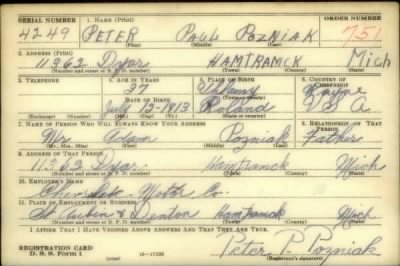 SERIAL NUMBER 1. NAME (Print) ORDER NUMBER
4249 PETER PAUL POZNIAK 751
(First) (Middle) (Last)
2. ADDRESS (Print)
11362 Dyar HAMTRAMCK Mich
(Number and street or R. F. D. number) (Town) (County) (State)
3. TELEPHONE 4. AGE IN YEARS 5. PLACE OF BIRTH 6. COUNTRY OF CITIZENSHIP
27
DATE OF BIRTH
July 12-1913 Poland U S A
(Exchange) (Number) (Mo.) (Day) (Yr.) (State or country)
7. NAME OF PERSON WHO WILL ALWAYS KNOW YOUR ADDRESS 8. RELATIONSHIP OF THAT PERSON
Mr. Adam Pozniak Father
(Mr., Mrs., Miss) (First) (Middle) (Last)
9. ADDRESS OF THAT PERSON
11362 Dyar Hamtramck Mich
(Number and street or R. F. D. number) (Town) (County) (State)
10. EMPLOYER'S NAME
Motor Co.
11. PLACE OF EMPLOYMENT OR BUSINESS
St. Aubin & Denton Hamtramck Mich
(Number and street or R. F. D. number) (Town) (County) (State)
I AFFIRM THAT I HAVE VERIFIED ABOVE ANSWERS AND THAT THEY ARE TRUE.
REGISTRATION CARD
D. S. S. Form 1 (over) Peter P. Pozniak
(Registrant's signature)